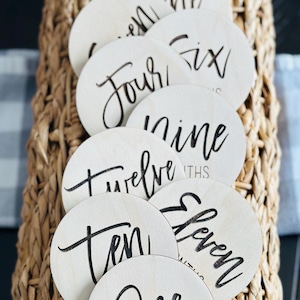 Seven
Six
Four
Nine
THS
Twelve
Eleven
Ten